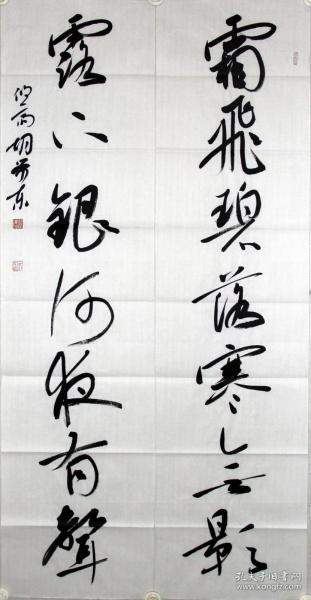 霜飛碧落寒無影
露下銀河夜有聲
孔夫子旧书网
www.kongfz.com